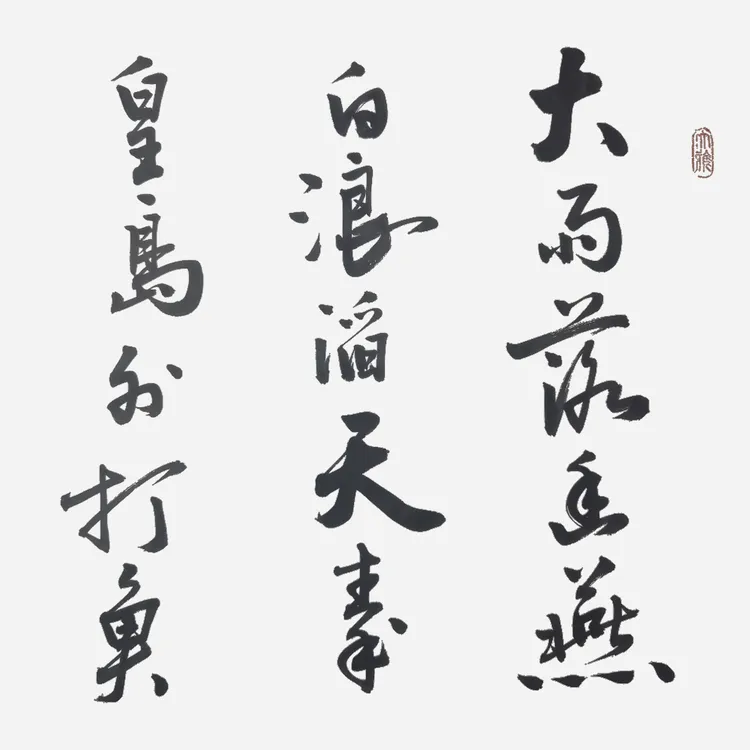 大雨落幽燕
白浪滔天秦
皇島外打魚